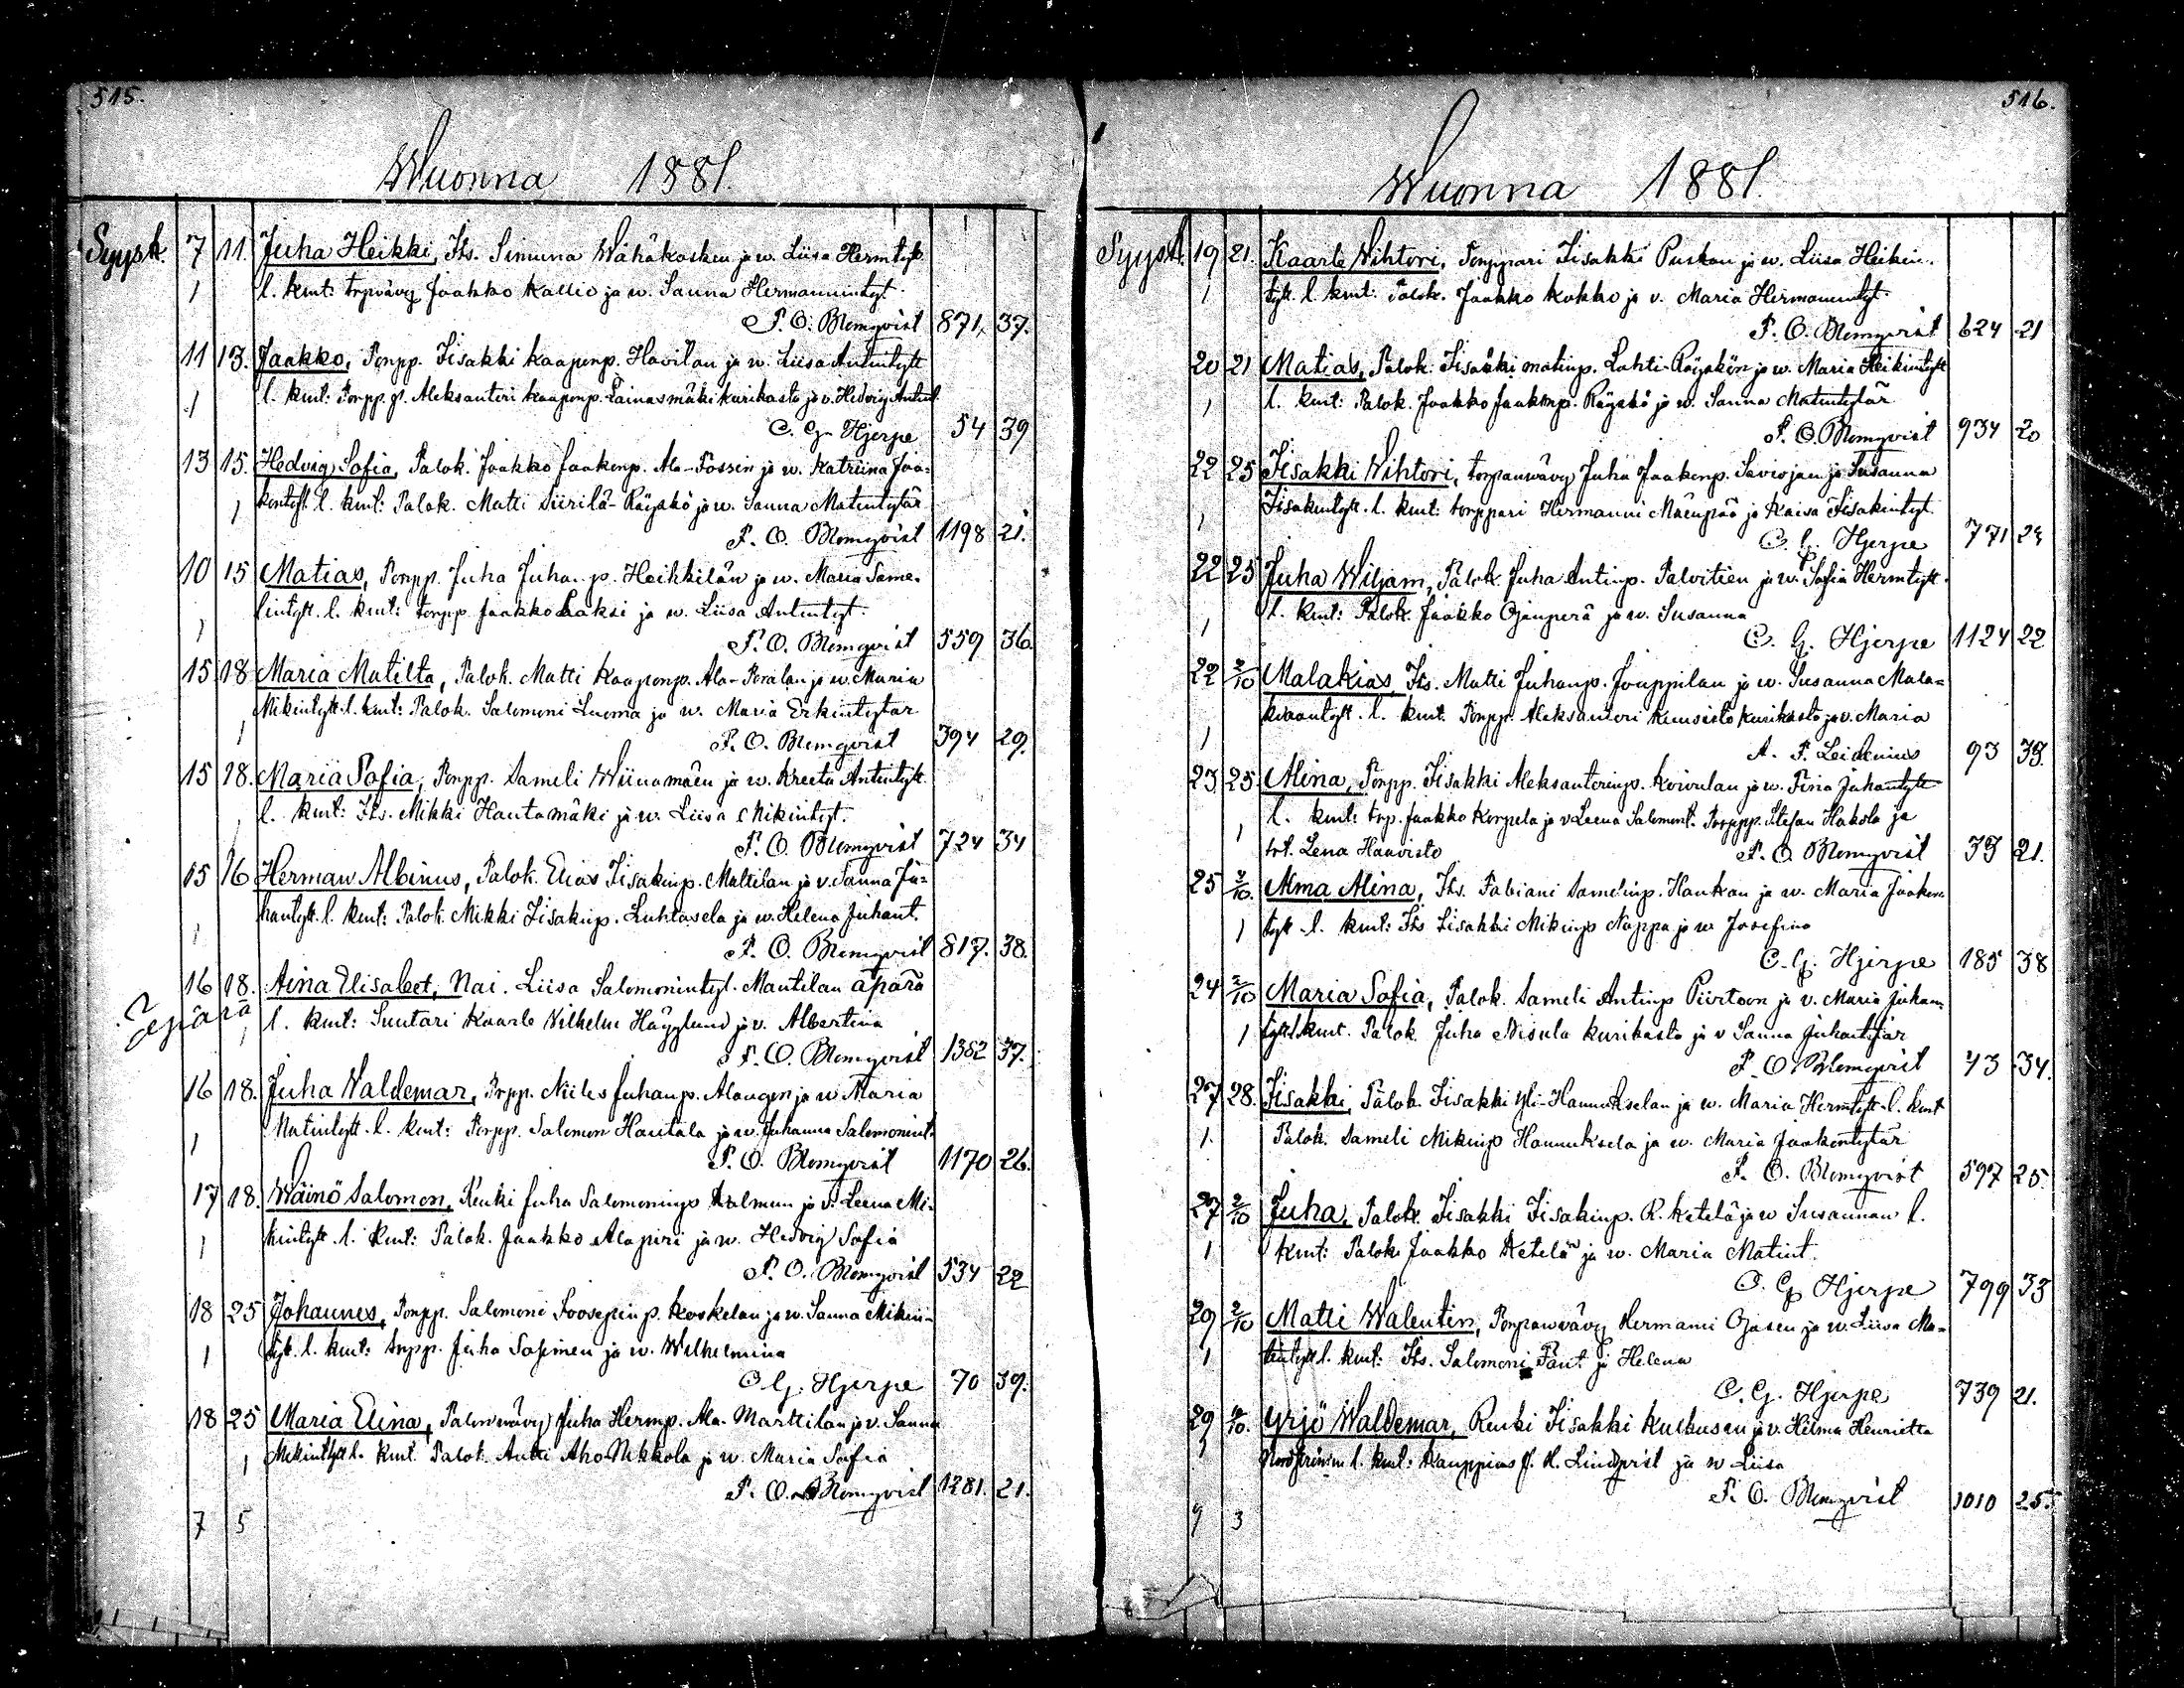 515.
Wuonna 1881.
Syysk. 7 11. Juha Heikki, Its. Simuna Wähäkosken ja w. Liisa Hermtytt.
1 l. kmt: trpvävy Jaakko Kallio ja w. Sanna Hermannintyt.
P. O. Blomqvist 871. 37.
11 13. Jaakko, Torpp. Iisakki Kaapenp. Havilan ja w. Liisa Antintytt
1 l. kmt: Torpp.p. Aleksanteri Kaapenp. Lainasmäki Kurikasta ja v. Hedvig Antint.
C. G. Hjerpe 54 39
13 15. Hedvig Sofia, Palok. Jaakko Jaakonp. Ala-Fossin ja w. Katriina Jaa-
1 kontytt. l. kmt: Palok. Matti Siirilä-Räyskö ja w. Sanna Matintytär
P. O. Blomqvist 1198 21.
10 15 Matias, Torpp. Juha Juhanp. Heikkilän ja w. Maria Same-
1 lintytt. l. kmt: torpp. Jaakko Laksi ja w. Liisa Antintyt.
P. O. Blomqvist 559 36.
15 18 Maria Matilta, Palok. Matti Kaapenp. Ala-Peralan ja w. Maria
1 Mikintytt. l. kmt: Palok. Salomoni Luoma ja w. Maria Erkintytar
P. O. Blomqvist 394 29.
15 18. Maria Sofia, Torpp. Sameli Wiinamäen ja w. Kreeta Antintytt.
1 l. kmt: Its. Mikki Hautamäki ja w. Liisa Mikintyt.
P. O. Blomqvist 724 34
15 16 Herman Albinus, Palok. Elias Iisakinp. Mattilan ja v. Sanna Ju-
1 hantytt. l. kmt: Palok. Mikki Iisakinp. Luhtasela ja w. Helena Juhant.
P. O. Blomqvist 817. 38.
16 18. Aina Elisabet, Nai. Liisa Salomonintyt. Mantilan äpärä
? äpärä 1 l. kmt: Suutari Kaarle Vilhelm Hägglund ja v. Albertina
P. O. Blomqvist 1382 37.
16 18. Juha Waldemar, Trpp. Niiles Juhanp. Alangon ja w. Maria
1 Matintytt. l. kmt: Torpp. Salomon Hautala ja w. Johanna Salomonint.
P. O. Blomqvist 1170 26.
17 18. Wäinö Salomon, Renki Juha Salomoninp. Kalmun ja v. Leena Mi-
1 kintytt. l. kmt: Palok. Jaakko Alapiri ja w. Hedvig Sofia
P. O. Blomqvist 534 22
18 25 Johannes, Torpp. Salomoni Joosepin p. Koskelan ja w. Sanna Mikin-
1 tyt. l. kmt: trpp. Juha Salminen ja w. Wilhelmina
C. G. Hjerpe 70 39.
18 25 Maria Elina, Talonwävy Juha Hermp. Ala-Marttilan ja v. Sanna
1 Mikintytt l. kmt. Palok. Antti Aho-Nikkola ja w. Maria Sofia
P. O. Blomqvist 1281. 21.
7 5
516.
Wuonna 1881.
Syysk. 19 21. Kaarle Wihtori, Torppari Iisakki Puskan ja w. Liisa Heikin-
1 tytt. l. kmt: Palok. Jaakko Kokko ja v. Maria Hermannintyt.
P. O. Blomqvist 624 21
20 21 Matias, Palok. Iisakki Matinp. Lahti-Räyskön ja w. Maria Heikintytt
1 l. kmt: Palok. Jaakko Jaakonp. Räyskö ja w. Sanna Matintytär
P. O. Blomqvist 934 20
22 25 Iisakki Wihtori, torpanwävy Juha Jaakonp. Saviojan ja Susanna
1 Iisakintytt. l. kmt: torppari Hermanni Mäenpää ja Kaisa Iisakintyt.
C. G. Hjerpe 771 24
22 25 Juha Wiljam, Palok. Juha Antinp. Palvitien ja w. Sofia Hermtytt.
1 l. kmt: Palok. Jaakko Ojanperä ja w. Susanna
C. G. Hjerpe 1124 22
22 2/10 Malakias, Its. Matti Juhanp. Jouppilan ja w. Susanna Mala-
1 kiaantytt. l. kmt. Torpp. Aleksanteri Kuusisto Kurikasta ja v. Maria
A. F. Leidenius 93 39.
23 25 Alina, Torpp. Iisakki Aleksanterinp. Koivulan ja w. Fina Juhantytt
1 l. kmt: trp. Jaakko Korpela ja v. Leena Salomont. Torppp. Stefan Hakola ja
trt. Lena Haavisto P. O. Blomqvist 39 21.
25 2/10. Alma Alina, Its. Fabiani Samelinp. Haukan ja w. Maria Jaakon-
1 tytt. l. kmt: Its Iisakki Mikinp. Nappa ja w Josefina
C. G. Hjerpe 185 38
24 2/10 Maria Sofia, Palok. Sameli Antinp Piirtoon ja v. Maria Juhan-
1 tytt l. kmt. Palok. Juha Nisula Kurikasta ja v Sanna Juhantytär
P. O. Blomqvist 43 34.
27 28. Iisakki, Palok. Iisakki Yli-Hannukselan ja w. Maria Hermtytt. l. kmt
1. Palok. Sameli Mikinp Hannuksela ja w. Maria Jaakontytär
P. O. Blomqvist 597 25.
27 2/10 Juha, Palok. Iisakki Iisakinp. R. Ketelä ja w Susannan l.
1 kmt: Palok Jaakko Ketelä ja w. Maria Matint.
C. G. Hjerpe 799 33
29 2/10 Matti Walentin, Torpanvävy Hermanni Ojasen ja w. Liisa Ma-
1 tintytt l. kmt: Its. Salomoni Fant ja Helena
C. G. Hjerpe 739 21.
29 4/10. Yrjö Waldemar, Renki Iisakki Kulkusen ja v. Hilma Henrietta
1 l. kmt: Kauppias J. H. Lindqvist ja w Liisa
P. O. Blomqvist 1010 25.
9 3